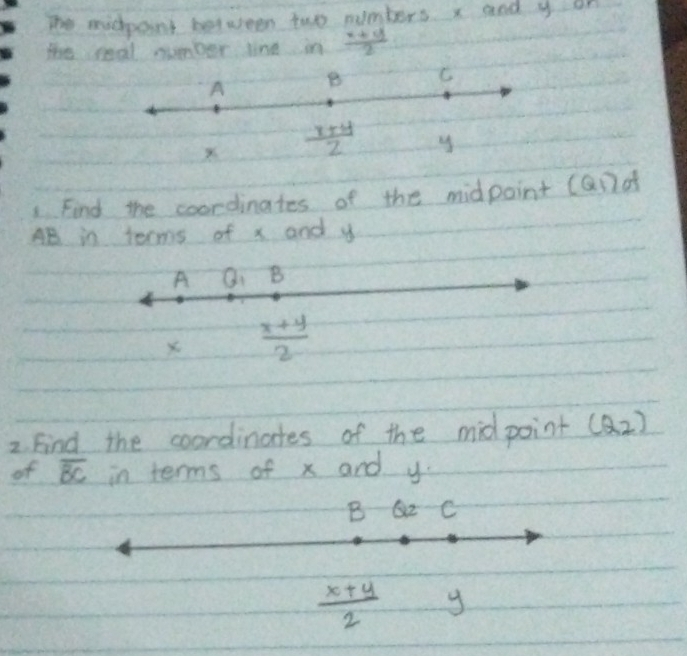 The midpoint between two numbers x and y on
the real number line in x+y/2
A B C
x x+y/2 y
1. Find the coordinates of the midpoint (Q1) of
AB in terms of x and y
A Q1 B
x x+y/2
2. Find the coordinates of the midpoint (Q2)
of BC in terms of x and y.
B Q2 C
x+y/2 y